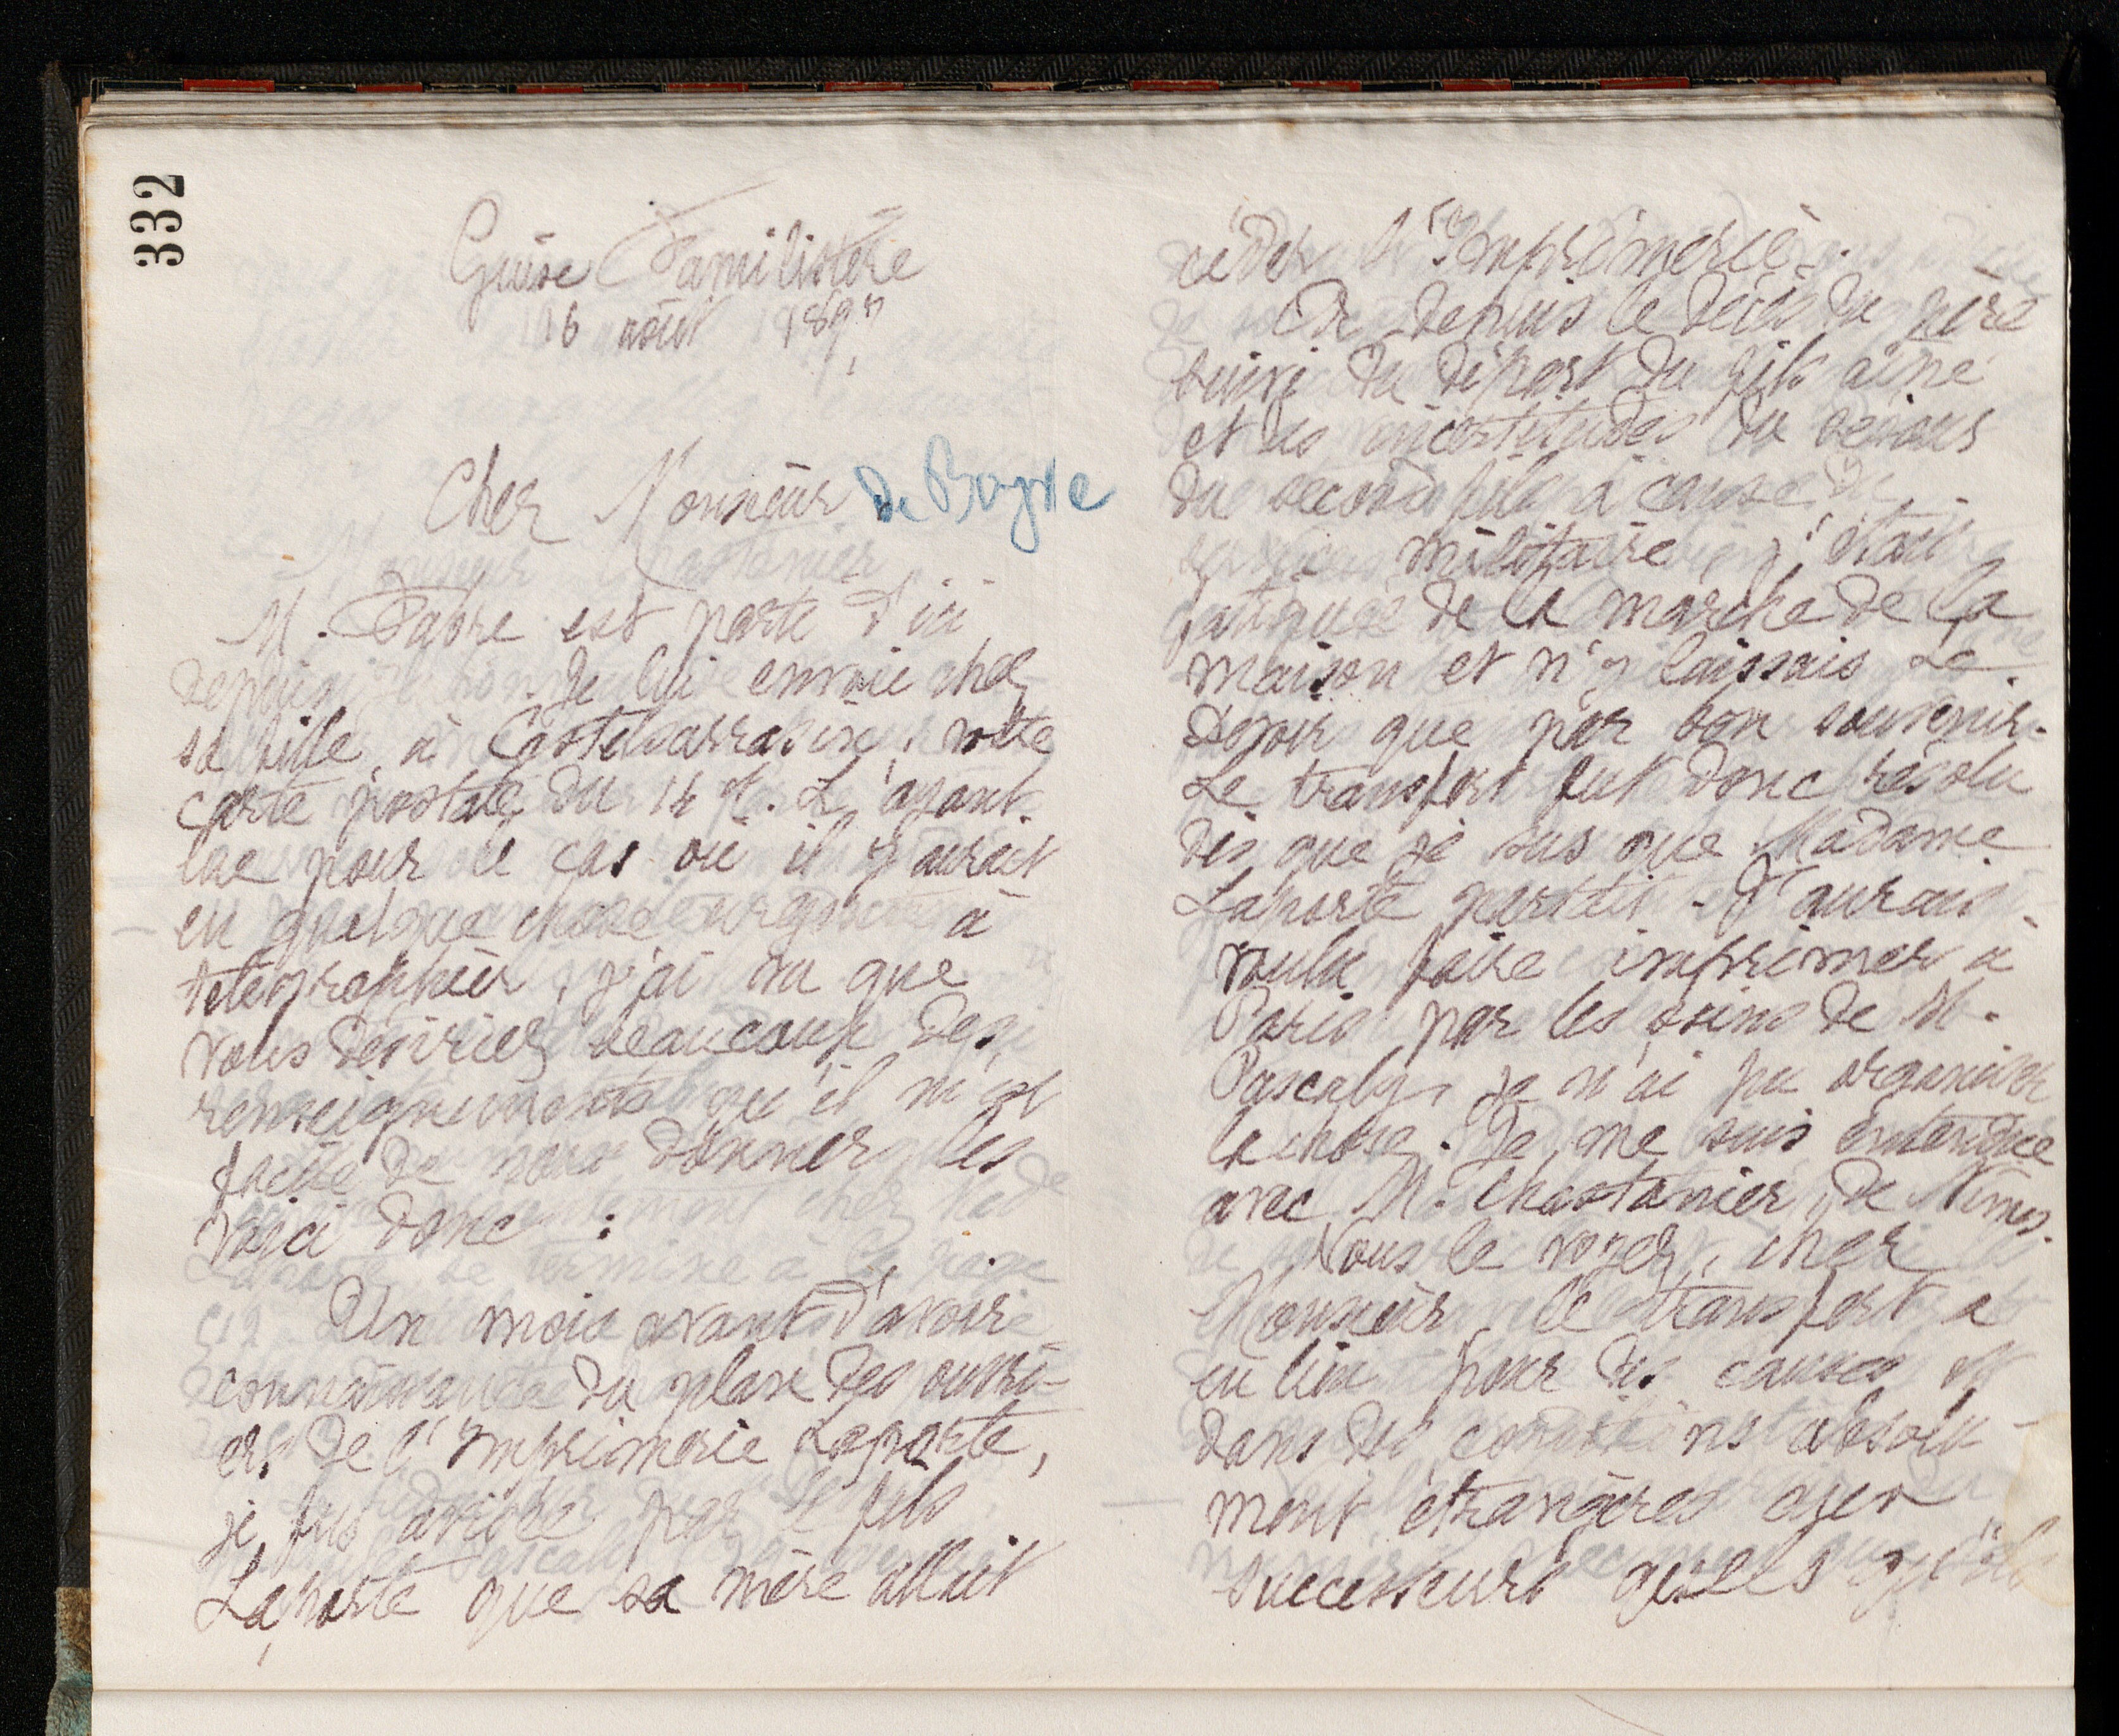 332
Guise Familistère
16 août 1897
Cher Monsieur de Boyve
M. Fabre est parti d'ici
depuis. Je lui envoie chez
sa fille, à Castelsarrasin, votre
carte postale du 14 ct. L'ayant
lue pour le cas où il y aurait
eu quelque chose à
télégraphier, j'ai vu que
vous désiriez beaucoup des
renseignements qu'il m'est
facile de vous donner, les
voici donc :
Un mois avant d'avoir
connaissance du plan des ouvri-
ers de l'Imprimerie Laporte,
je fus avisée par le fils
Laporte que sa mère allait
céder l'Imprimerie.
Or depuis le décès du père
suivi du départ du fils aîné
et les incertitudes du
du second fils à cause du
militaire j'étais
fatiguée de la marche de la
maison et n'y laissais Le
Devoir que par bon souvenir.
Le transfert fut donc résolu
dès que je sus que Madame
Laporte partait. J'aurais
voulu faire imprimer à
Paris par les soins de M.
Pascaly, je n'ai pu organiser
la chose. Je me suis entendue
avec M. Chastanier, de Nîmes.
Vous le voyez, cher
Monsieur, le transfert a
eu lieu pour des causes et
dans des conditions absolu-
ment étrangères aux
successeurs quels qu'ils